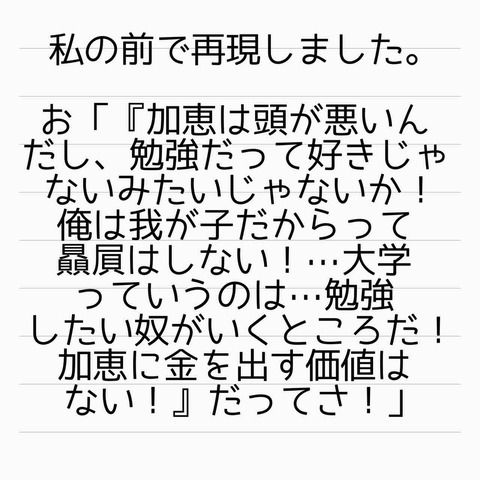 私の前で再現しました。
お「『加恵は頭が悪いん
だし、勉強だって好きじゃ
ないみたいじゃないか！
俺は我が子だからって
贔屓はしない！…大学
っていうのは…勉強
したい奴がいくところだ！
加恵に金を出す価値は
ない！』だってさ！」